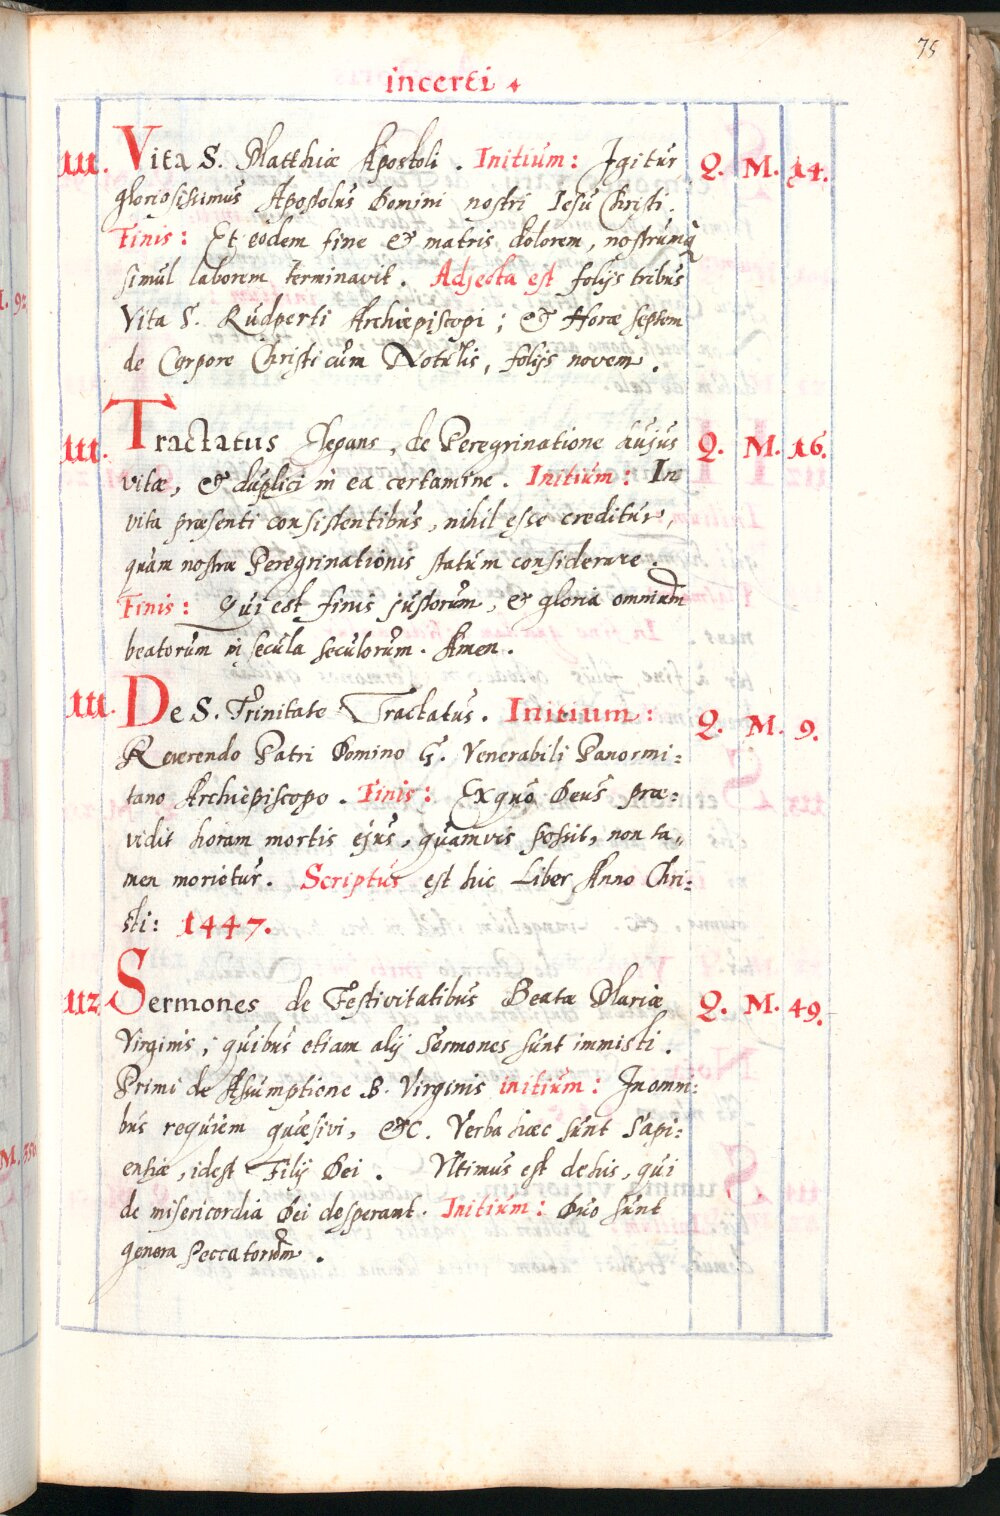 75
incerti
111. Vita S. Matthiæ Apostoli. Initium: Igitur Q. M. 14.
gloriosissimus Apostolus Domini nostri Iesu Christi.
Finis: Et eodem fine & matris dolorem, nostrumq
simul laborem terminavit. Adjecta est folijs tribus
Vita S. Rudperti Archiepiscopi; & Horæ septem
de Corpore Christi cum Notulis, folijs novem.
111. Tractatus, de Peregrinatione hujus Q. M. 16.
vitæ, & duplici in ea certamine. Initium: In
vita præsenti consistentibus, nihil esse creditur,
quàm nostræ Peregrinationis statum considerare.
Finis: Qui est finis justorum, & gloria omnium
beatorum in secula seculorum. Amen.
111. De S. Trinitate Tractatus. Initium: Q. M. 9.
Reverendo Patri Domino G. Venerabili Panormi:
tano Archiepiscopo. Finis: Ex quo Deus præ:
vidit horam mortis ejus, quamvis possit, non ta„
men morietur. Scriptus est hic Liber Anno Chri:
sti: 1447.
112 Sermones de Festivitatibus Beatæ Mariæ Q. M. 49.
Virginis, quibus etiam alij Sermones sunt immisti.
Primi de Assumptione B. Virginis initium: In omni:
bus requiem quæsivi, &c. Verba hæc sunt Sapi:
entiæ, idest Filij Dei. Vltimus est de his, qui
de misericordia Dei desperant. Initium: Duo sunt
genera Peccatorum.